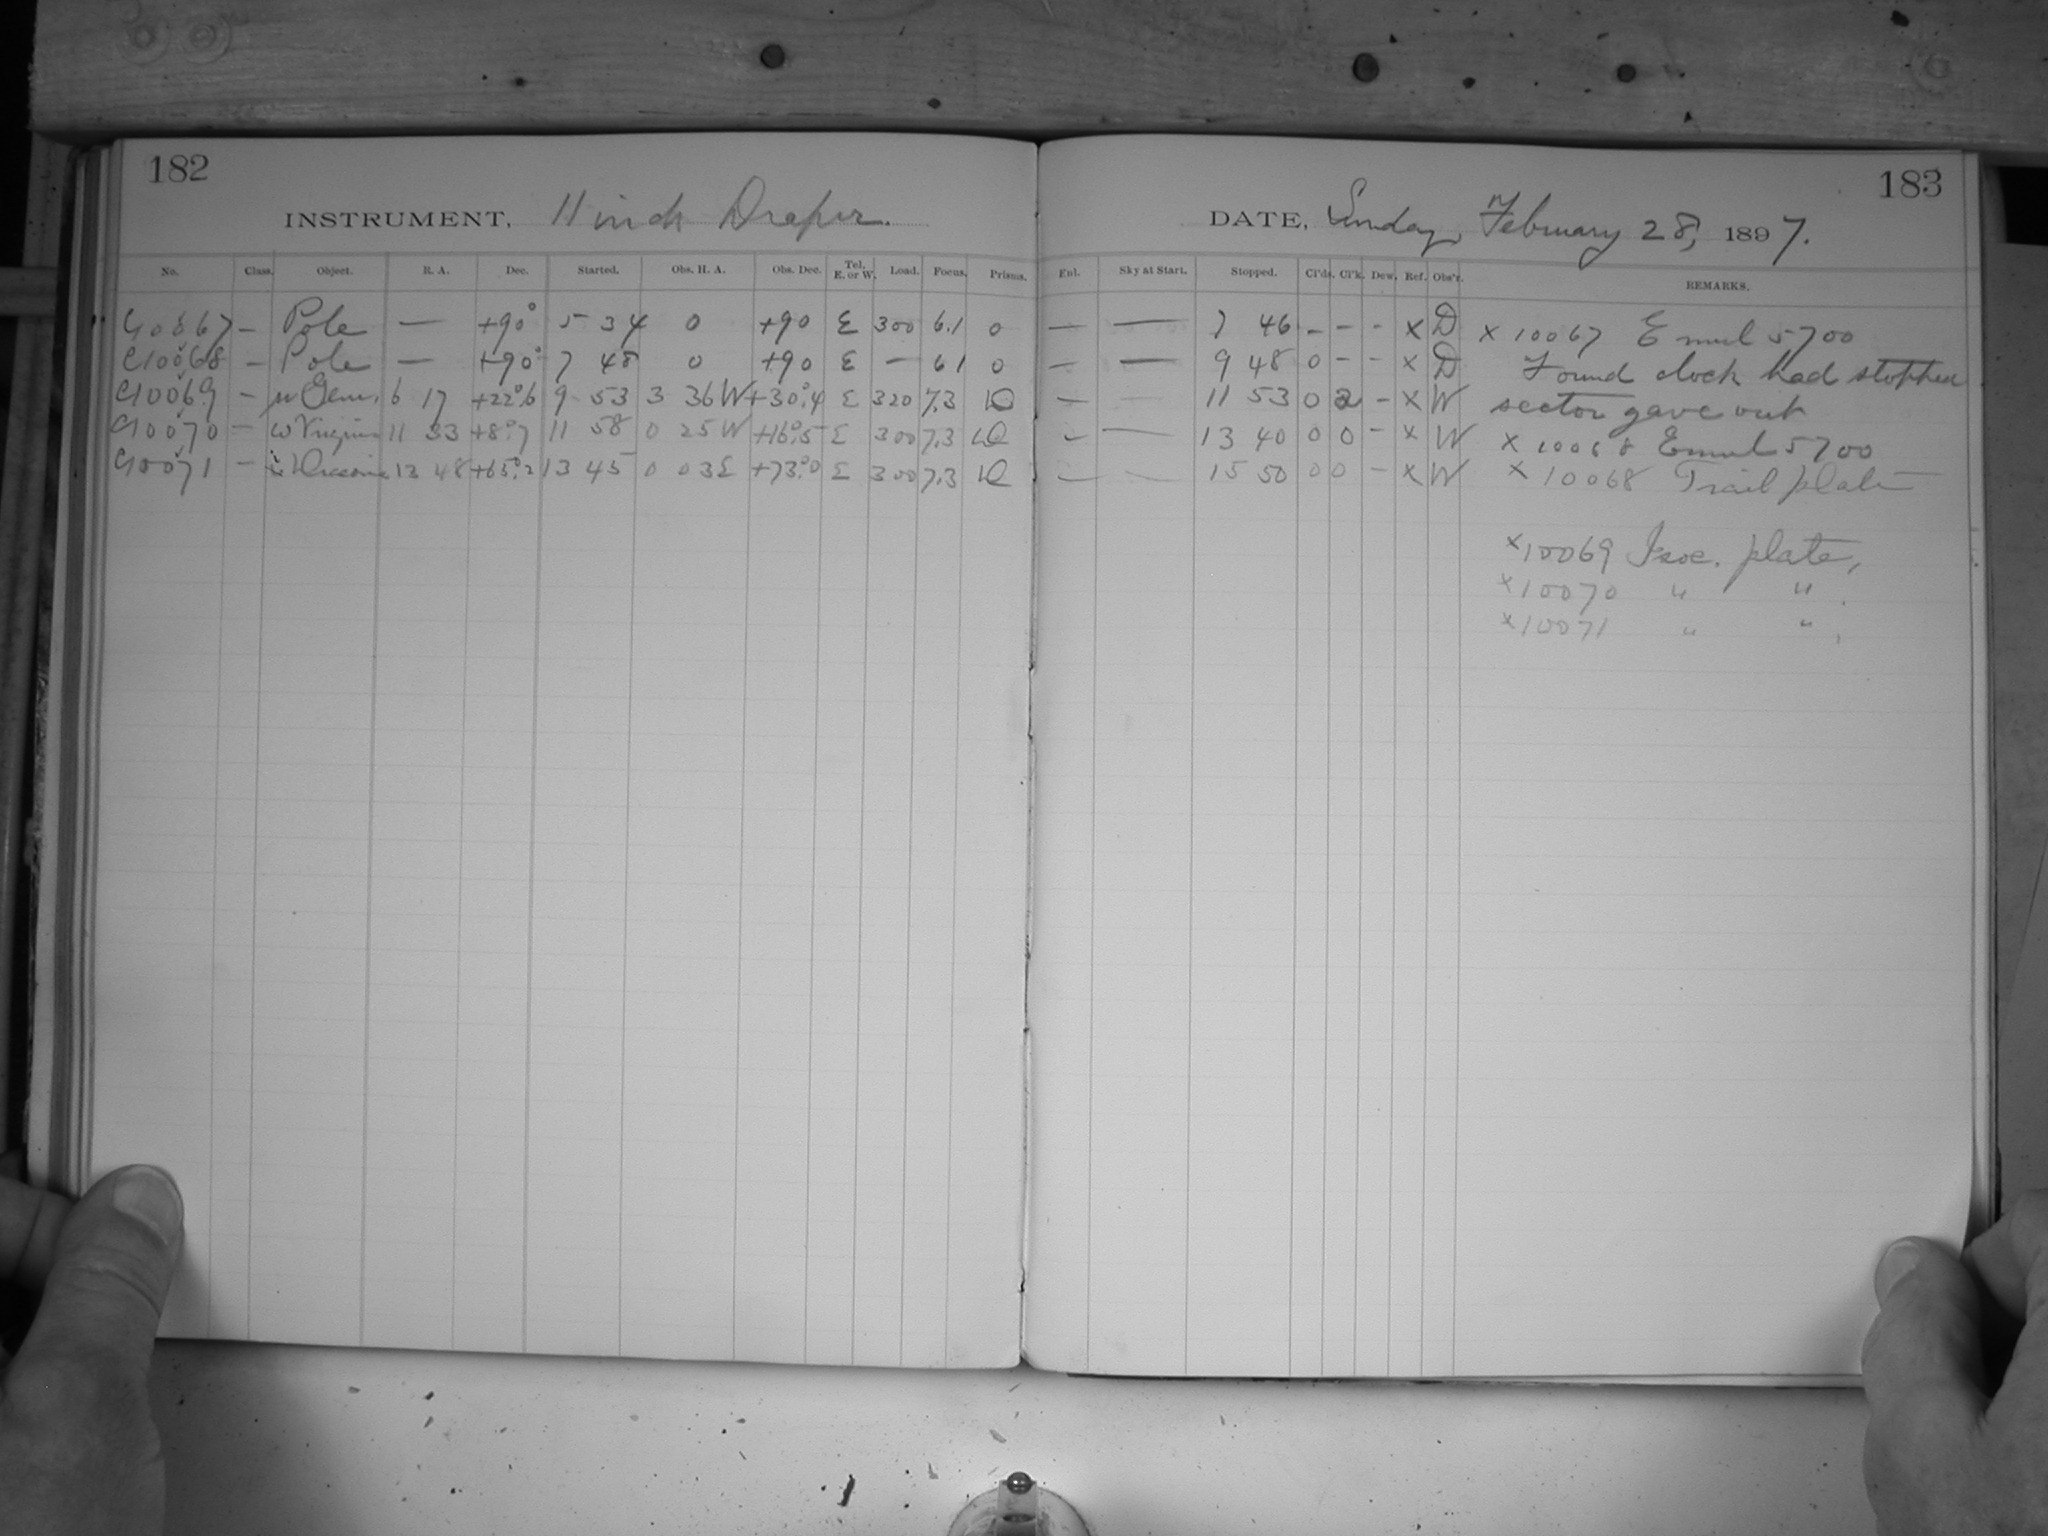 182
INSTRUMENT, 11 inch Draper.
No. Class. Object. R. A. Dec. Started. Obs. H. A. Obs. Dec. Tel. E. or W. Load. Focus. Prisms.
C10067 – Pole — +90° 5 34 0 +90 E 300 6.1 0
C10068 – Pole — +90° 7 48 0 +90 E – 61 0
C10069 – μ Gem. 6 17 +22°6 9 53 3 36 W +30°.4 E 320 7.3
C10070 – ω Virginis 11 33 +8°.7 11 58 0 25 W +16°.5 E 300 7.3
C10071 – i Draconis 13 48 +65°.2 13 45 0 03 E +73°.0 E 300 7.3
183
DATE, Sunday, February 28, 1897.
Enl. Sky at Start. Stopped. Cl'ds. Cl'k. Dew. Ref. Obs'r. REMARKS.
— — 7 46 – – – x D x 10067 Emul 5700
— — 9 48 0 – – x D Found clock had stopped
— — 11 53 0 2 – x W sector gave out
– — 13 40 0 0 – x W x 10068 Emul 5700
— — 15 50 0 0 – x W x 10068 Trail plate
x10069 Isoc. plate,
x10070 " " .
x10071 " " ,